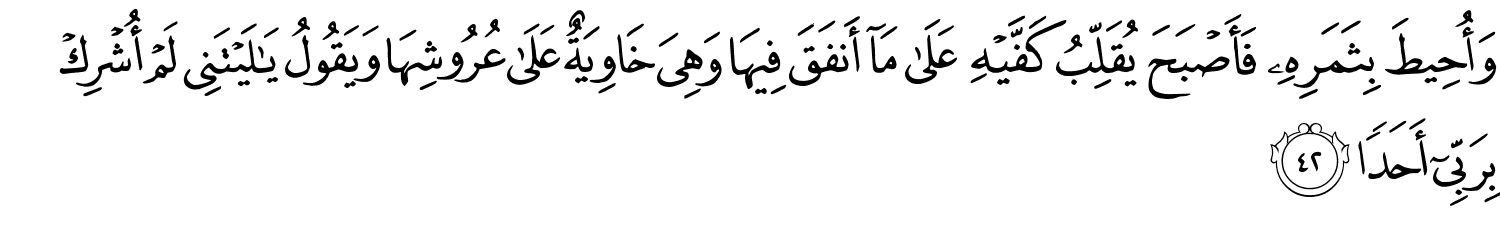 وَأُحِيطَ بِثَمَرِهِۦ فَأَصۡبَحَ يُقَلِّبُ كَفَّيۡهِ عَلَىٰ مَآ أَنفَقَ فِيهَا وَهِيَ خَاوِيَةٌ عَلَىٰ عُرُوشِهَا وَيَقُولُ يَٰلَيۡتَنِي لَمۡ أُشۡرِكۡ
بِرَبِّيٓ أَحَدٗا ٤٢